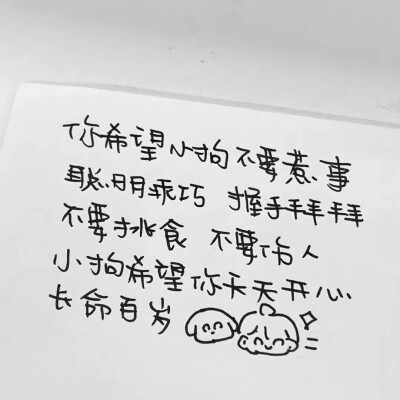 你希望小狗不要惹事
聪明乖巧 握手拜拜
不要挑食 不要伤人
小狗希望你天天开心
长命百岁